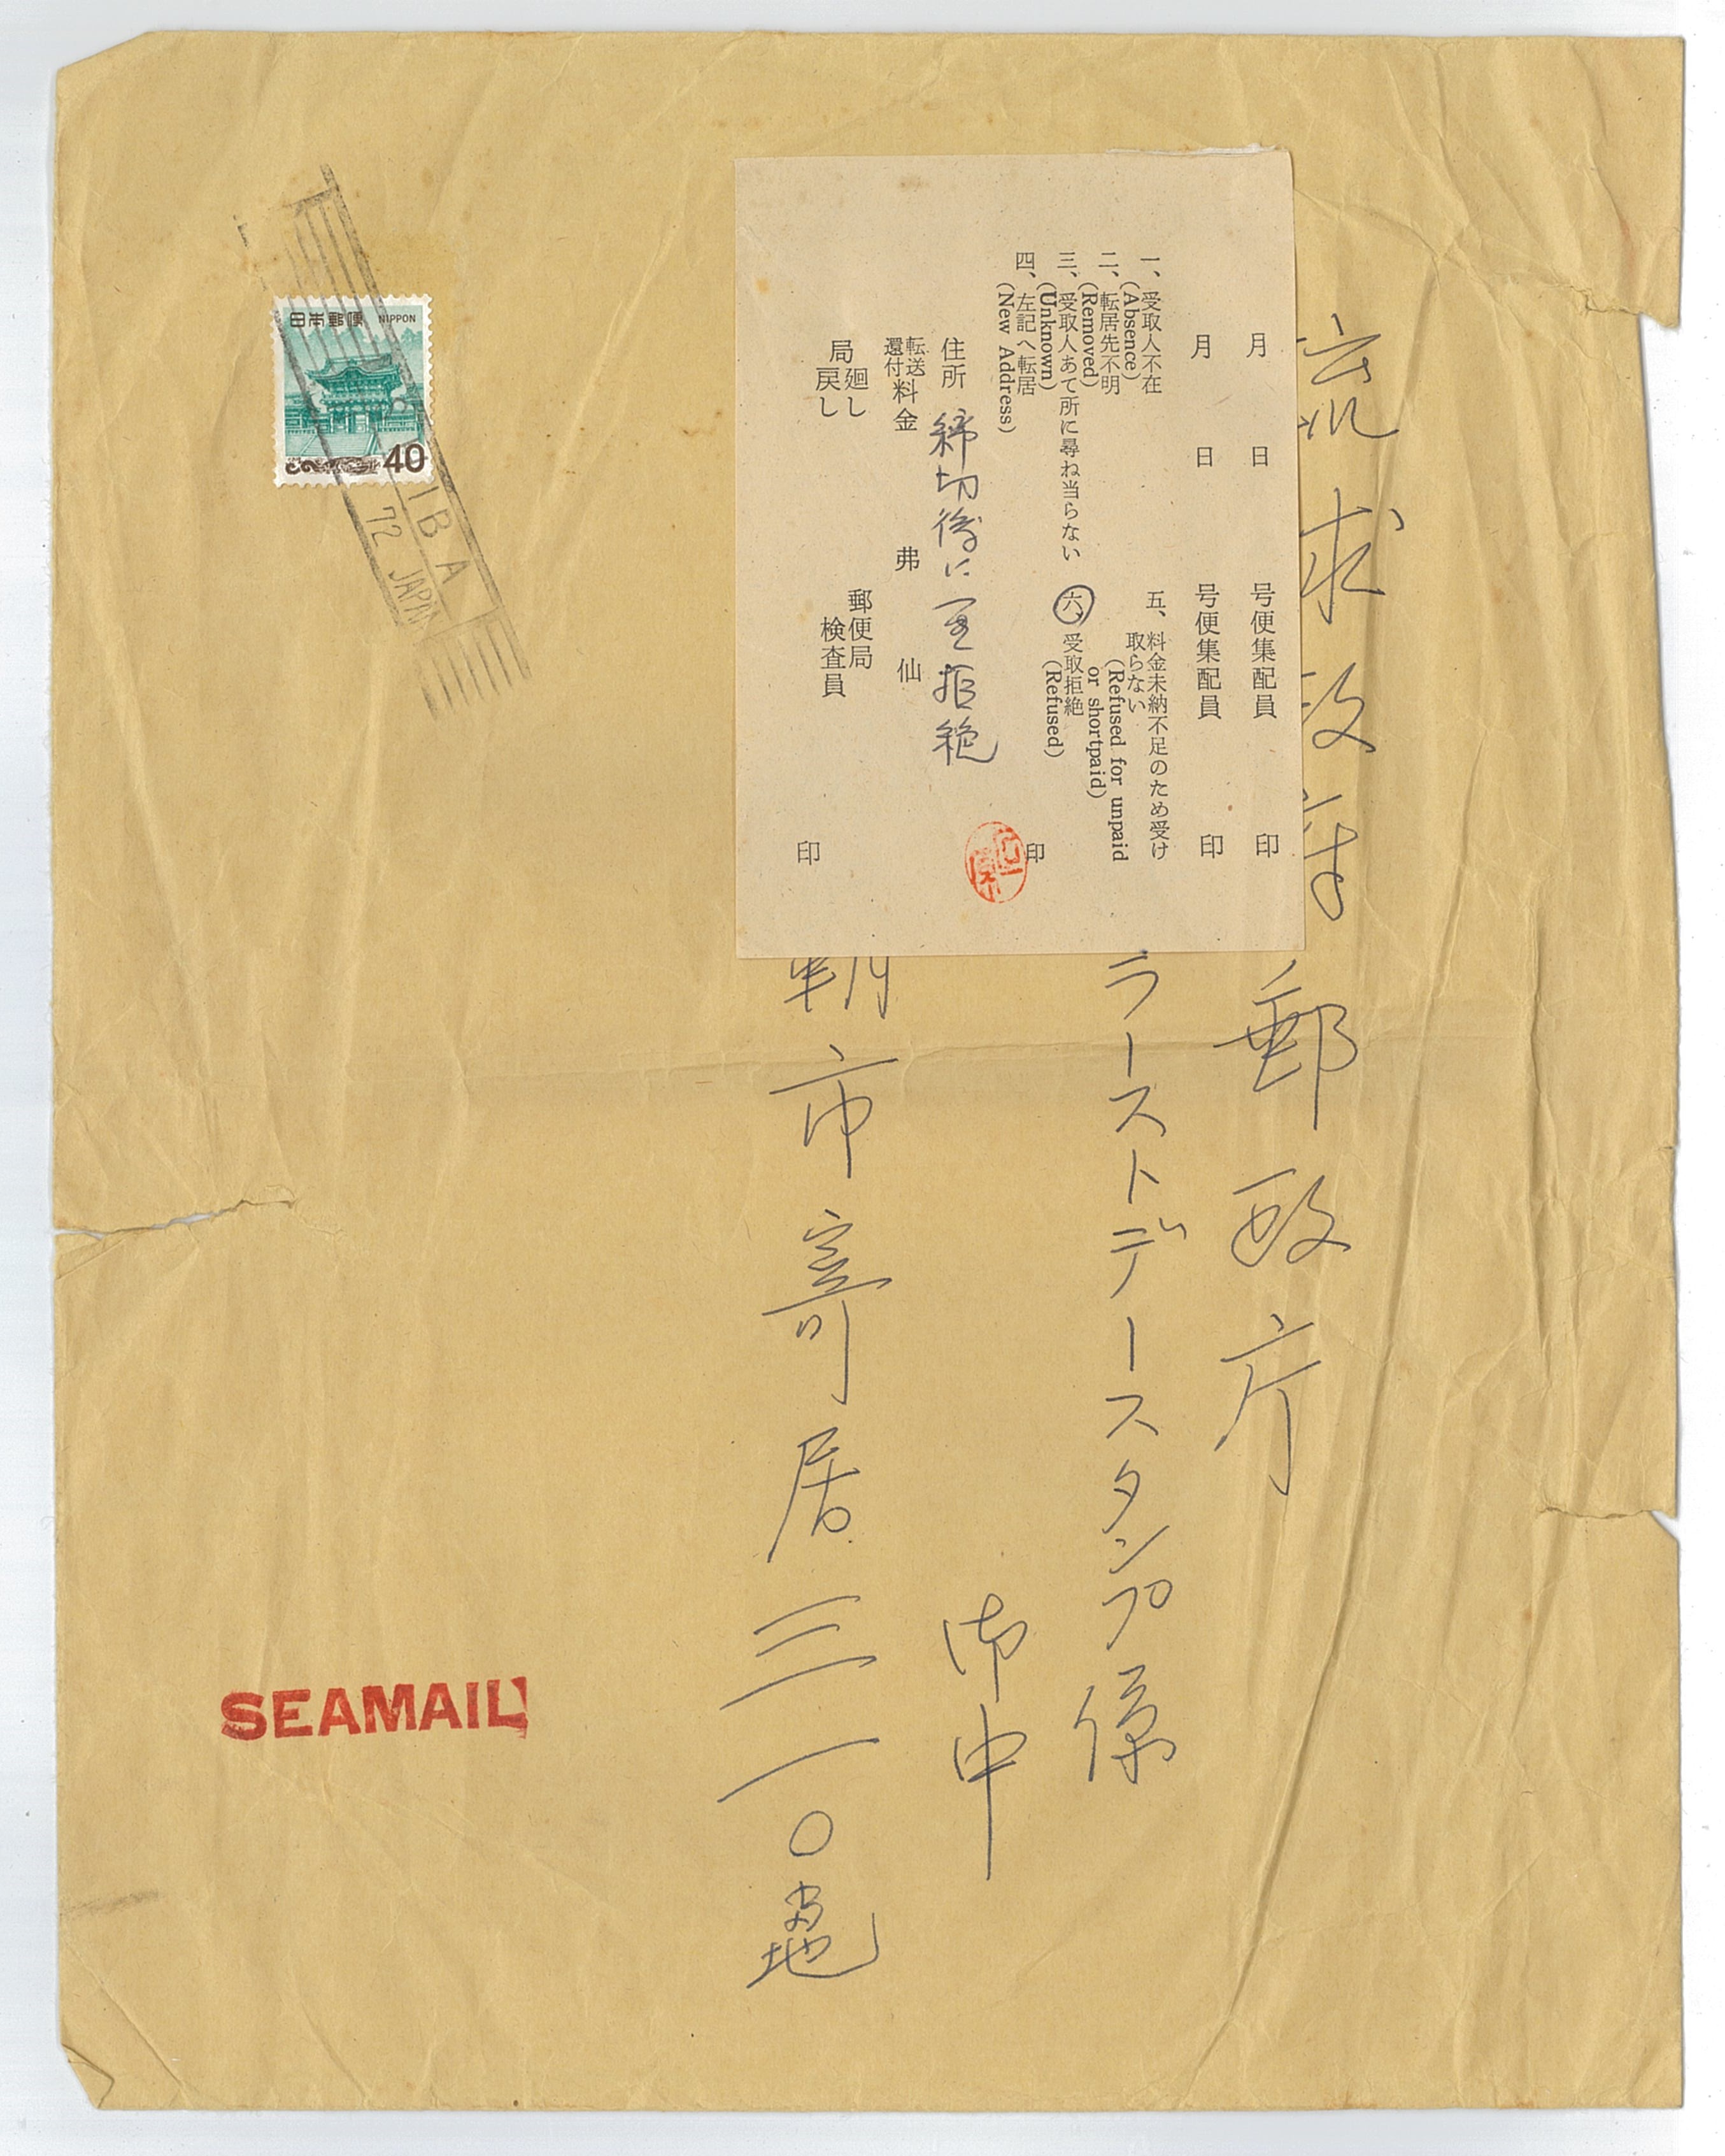 琉球政府 郵政庁
ラーストデースタンプ係
御中
覇市寄居三一〇番地
月 日 号便集配員 印
月 日 号便集配員 印
一、受取人不在
(Absence)
二、転居先不明
(Removed)
三、受取人あて所に尋ね当らない
(Unknown)
四、左記へ転居
(New Address)
五、料金未納不足のため受け
取らない
(Refused for unpaid
or shortpaid)
六、受取拒絶
(Refused)
住所 締切後に至拒絶 印
転送
還付
料金 弗 仙
局 廻し
戻し
郵便局
検査員 印
日本郵便 NIPPON
40
IBA
72 JAPAN
SEAMAIL